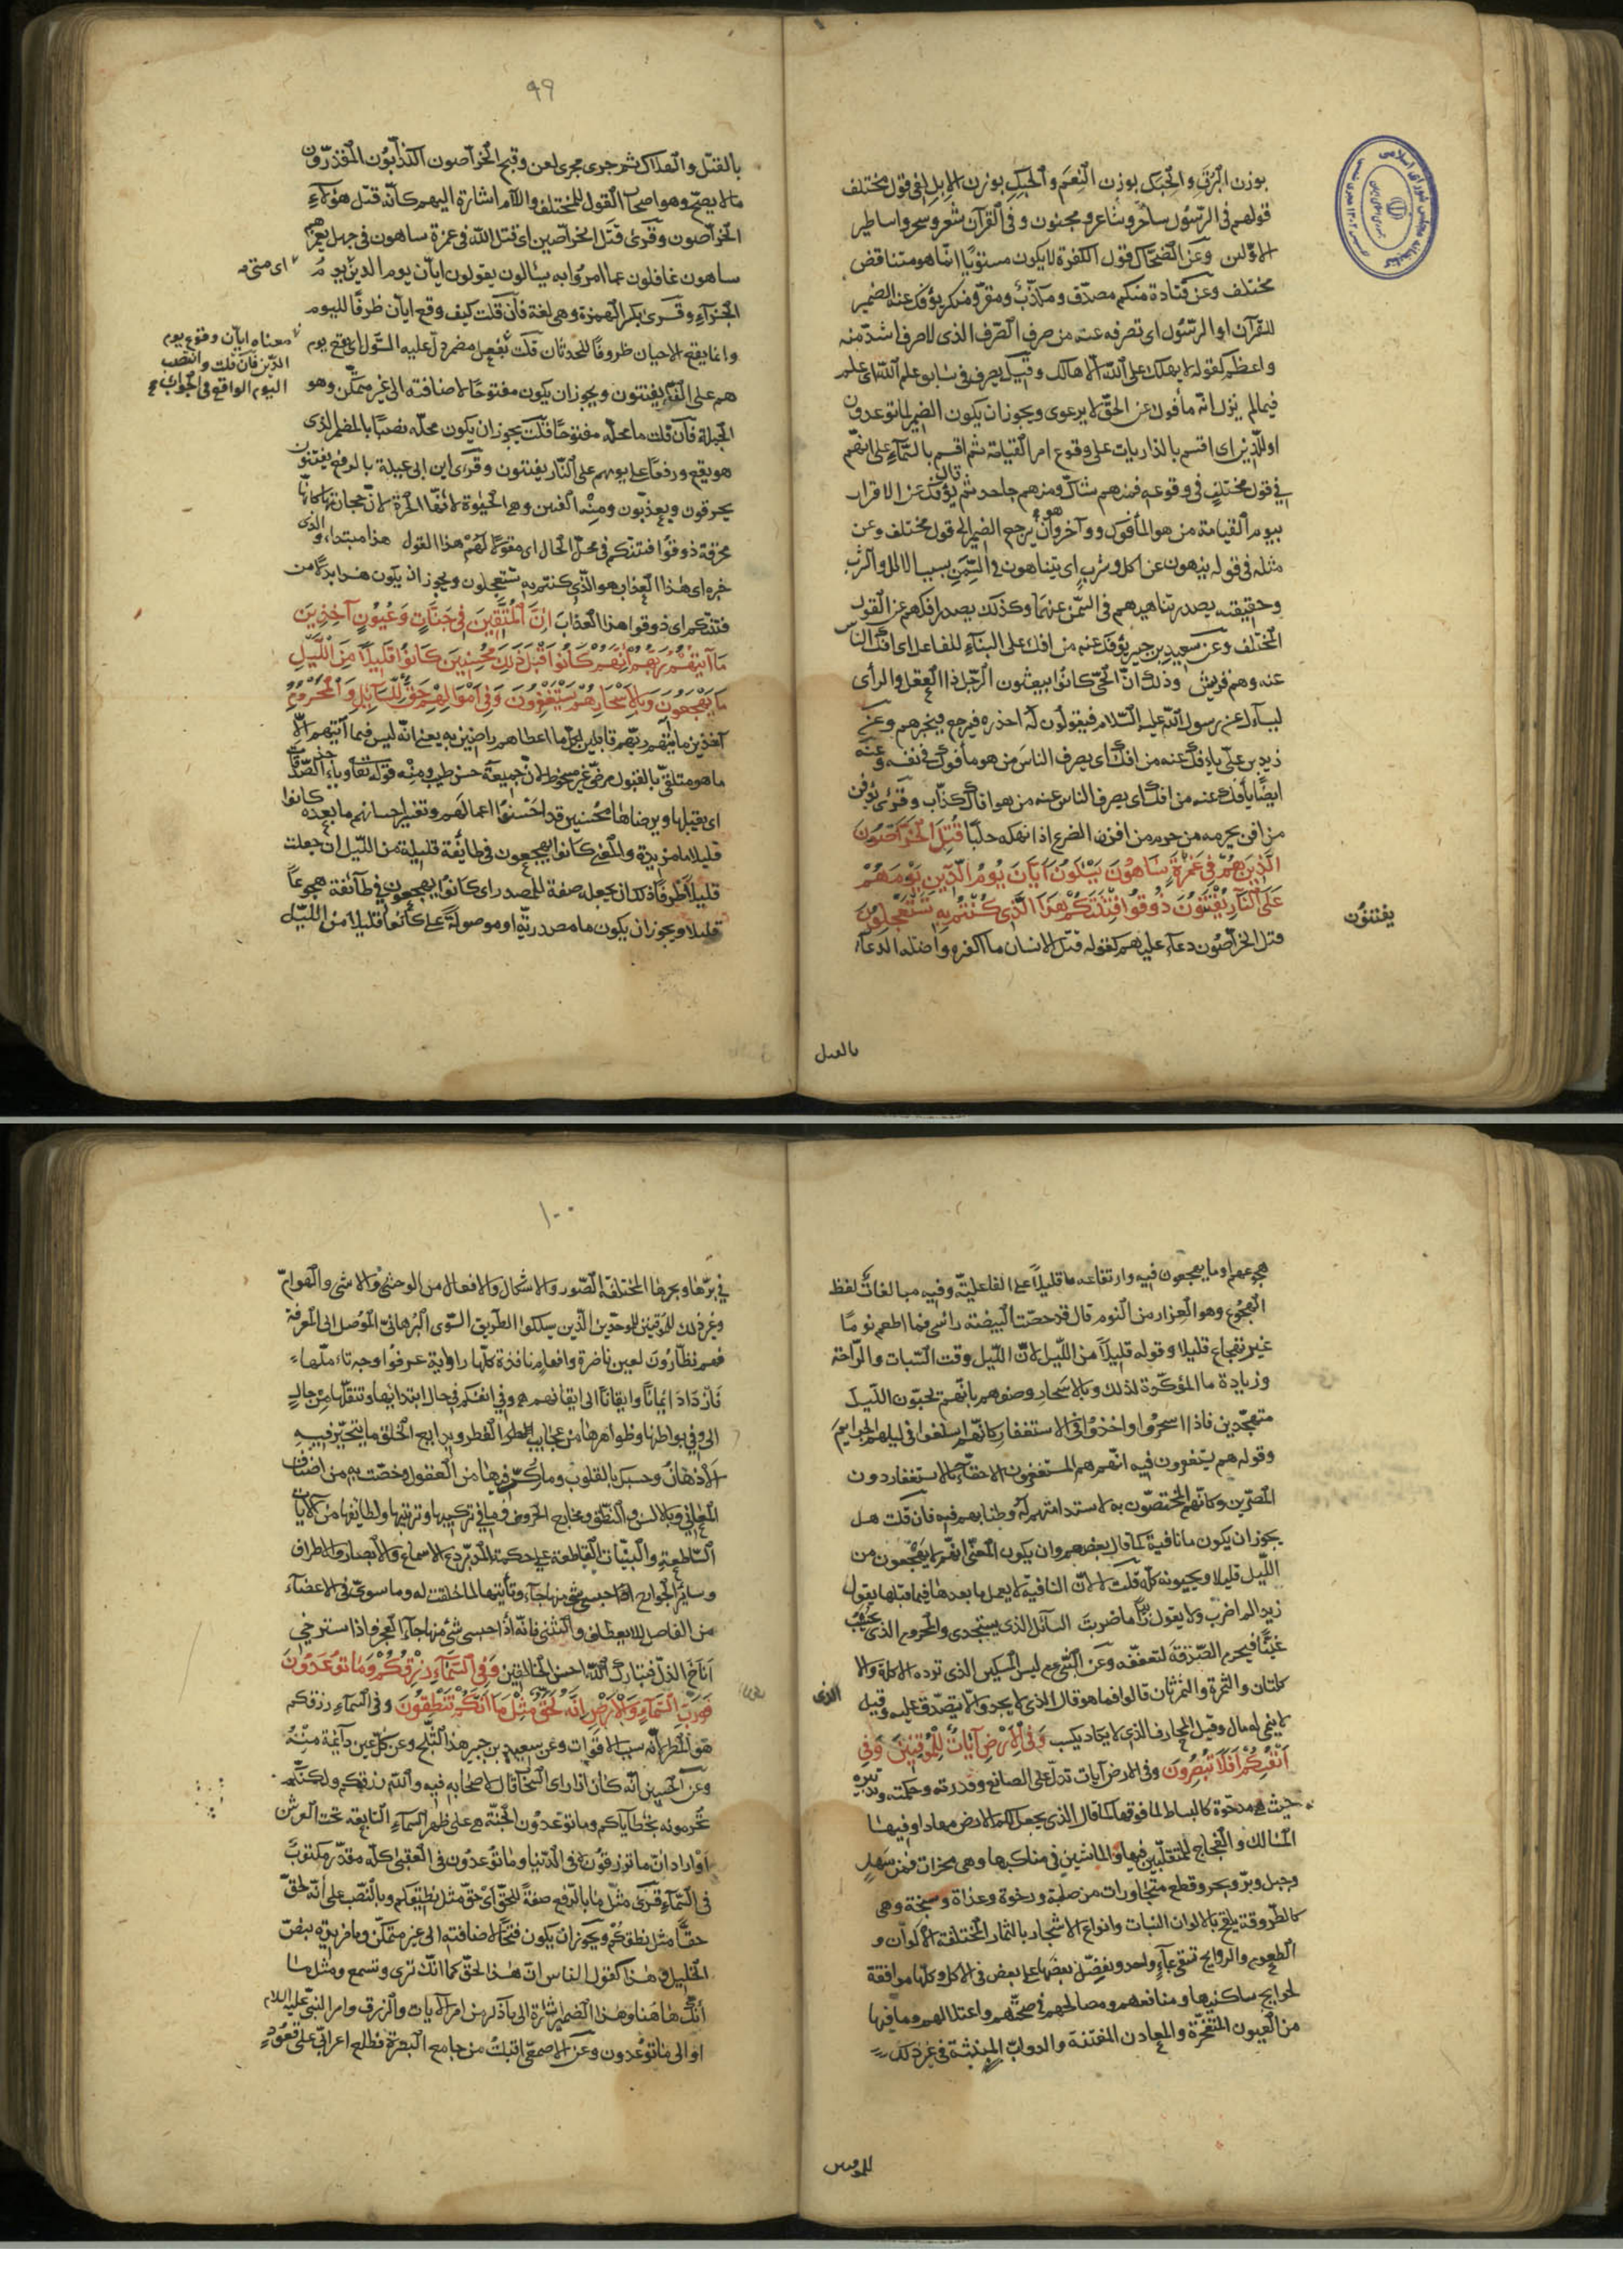 بوزن البرق والحبك بوزن النعم والحبك بوزن الابل لفى قول مختلف
قولهم فى الرسول ساحر وشاعر ومجنون وفى القرآن شعر وسحر واساطير
الاولين وعن الضحاك قول الكفرة لا يكون مستويا انما هو متناقض
مختلف وعن قتادة منكم مصدق ومكذب ومقر ومنكر يؤفك عنه الضمير
للقرآن او الرسول اى يصرف عنه من صرف الصرف الذى لا صرف اشد منه
واعظم كقوله لا يهلك على الله الا هالك وقيل يصرف فى سابق علم الله اى علم
فيما لم يزل انه مأفوك عن الحق لا يرعوى ويجوز ان يكون الضمير لما توعدون
او للدين اى اقسم بالذاريات على وقوع امر القيامة ثم اقسم بالسماء على انهم
فى قول مختلف فى وقوعه فمنهم شاك ومنهم جاحد ثم قال يؤفك عن الاقرار
بيوم القيامة من هو المأفوك ووآخر وهو ان يرجع الضمير الى قول مختلف وعن
مثله فى قوله ينهون عن اكل وشرب اى يتناهون فى السمن بسبب الاكل والشرب
وحقيقته يصدر تناهيهم فى السمن عنهما وكذلك يصدر افكهم عن القول
المختلف وعن سعيد بن جبير يؤفك عنه من افك على البناء للفاعل اى افك الناس
عنه وهم قريش وذلك ان الحى كانوا يبعثون الرجل ذا العقل والرأى
ليسأل عن رسول الله عليه السلام فيقولون له احذره فيرجع فيخبرهم وعن
زيد بن على يأفك عنه من افك اى يصرف الناس عنه من هو مأفوك فى نفسه وعنه
ايضا يأفك عنه من افك اى يصرف الناس عنه من هو افاك كذاب وقرئ يؤفن
من افن يحرمه من حرم من افن الضرع اذا نهكه حلبا قتل الخراصون
الذين هم فى غمرة ساهون يسئلون ايان يوم الدين يوم هم
على النار يفتنون ذوقوا فتنتكم هذا الذى كنتم به تستعجلون
يفتنون
قتل الخراصون دعاء عليهم كقوله قتل الانسان ما اكفره واصله الدعاء
بالقتل
٩٩
بالقتل والهلاك ثم جرى مجرى لعن وقبح الخراصون الكذابون المقدرون
ما لا يصح وهم اصحاب القول المختلف واللام اشارة اليهم كانه قتل هؤلاء
الخراصون وقرئ قتل الخراصين اى قتل الله فى غمرة ساهون فى جهل يغمرهم
ساهون غافلون عما امروا به يسئالون يقولون ايان يوم الدين يوم
اى متى
الجزاء وقرئ بكسر الهمزة وهى لغة فان قلت كيف وقع ايان ظرفا لليوم
وانما يقع الاحيان ظروفا للحدثان قلت بفعل مضمر دل عليه السؤل اى يقع يوم
معناه ايان وقوع يوم
الدين فان قلت وانتصب
اليوم الواقع فى الجواب
هم على النار يفتنون ويجوز ان يكون مفتوحا لاضافته الى غير متمكن وهو
الجملة فان قلت ما محله مفتوحا قلت يجوز ان يكون محله نصبا بالمضمر الذى
هو يقع ورفعا على يومهم على النار يفتنون وقرئ ابن ابى عبلة بالرفع يفتنون
يحرقون ويعذبون ومنه الفتين وهى الحرة لان حجارتها كانها
محرقة ذوقوا فتنتكم فى محل الحال اى مقولا لهم هذا القول هذا مبتداء والذى
خبره اى هذا العذاب هو الذى كنتم به تستعجلون ويجوز ان يكون هذا بدلا من
فتنتكم اى ذوقوا هذا العذاب ان المتقين فى جنات وعيون آخذين
ما آتيهم ربهم انهم كانوا قبل ذلك محسنين كانوا قليلا من الليل
ما يهجعون وبالاسحار هم يستغفرون وفى اموالهم حق للسائل والمحروم
آخذين ما آتيهم ربهم قابلين لكل ما اعطاهم راضين به يعنى انه ليس فيما آتيهم الا
ما هو متلقى بالقبول مرضى غير مسخوط لان جميعه حسن طيب ومنه قوله تعا ويأخذ الصدقات
اى يقبلها ويرضاها محسنين قد احسنوا اعمالهم وتفسير احسانهم ما بعده كانوا
قليلا ما مزيدة والمعنى كانوا يهجعون فى طائفة قليلة من الليل ان جعلت
قليلا ظرفا ذلك ان يجعله صفة للمصدر اى كانوا يهجعون فى طائفة هجوعا
قليلا ويجوز ان يكون ما مصدرية او موصولة على كانوا قليلا من الليل
هجوعهم او ما يهجعون فيه وارتفاعه ما قليلا على الفاعلية وفيه مبالغات لفظ
الهجوع وهو الغرار من النوم قال قد حصت البيضة راسى فما اطعم نوما
غير تهجاع قليلا وقوله قليلا من الليل لان الليل وقت السبات والراحة
وزيادة ما المؤكدة لذلك وبالاسحار وصفهم بانهم يحيون الليل
متهجدين فاذا اسحروا واخذوا فى الاستغفار كانهم اسلفوا فى ليلهم الجرايم
وقوله هم يستغفرون فيه انهم هم المستغفرون الاحقاء بالاستغفار دون
المصرين وكانهم المختصون به لاستدامتهم له واطنابهم فيه فان قلت هل
يجوز ان يكون ما نافية كما قال بعضهم وان يكون المعنى انهم لا يهجعون من
الليل قليلا ويحيونه كله قلت لا لان ما النافية لا يعمل ما بعدها فيما قبلها يقول
زيدا لم اضرب ولا يقول زيدا ما ضربت السائل الذى يستجدى والمحروم الذى يحسب
غنيا فيحرم الصدقة لتعففه وعن النبى ع م ليس المسكين الذى ترده الاكلة والا
كلتان والتمرة والتمرتان قالوا فما هو قال الذى لا يجد ولا يتصدق عليه وقيل
الذى
لا ينمى له مال وقيل المحارف الذى لا يكاد يكسب وفى الارض آيات للموقنين وفى
انفسكم افلا تبصرون وفى الارض آيات تدل على الصانع وقدرته وحكمته وتدبيره
حيث هى مدحوة كالبساط لما فوقها كما قال الذى جعل لكم الارض مهادا وفيها
المسالك والفجاج للمتقلبين فيها والماشين فى مناكبها وهى مجزات فمن سهل
وجبل وبر وبحر وقطع متجاورات من صلبة ورخوة وعذاة وسبخة وهى
كالطروقة تلقح بالوان النبات وانواع الاشجار بالثمار المختلفة الالوان و
الطعوم والروايح تسقى بماء واحد ونفضل بعضها على بعض فى الاكل وكلها موافقة
لحوايج ساكنيها ومنافعهم ومصالحهم فى صحتهم واعتلالهم وما فيها
من العيون المتفجرة والمعادن المفتنة والدواب المنبثة فى غير ذلك
١٠٠
فى برها وبحرها المختلفة الصور والاشكال والافعال من الوحشى والانسى والهوام
وغير ذلك للموقنين للموحدين الذين سلكوا الطريق السوى البرهانى الموصل الى المعرفة
فهم نظارون بعين ناضرة وافهام نافذة كلما راوا آية عرفوا وجه تاملها
فازدادا ايمانا وايقانا الى ايقانهم وفى انفسكم فى حال ابتدائها وتنقلها من حال
الى وفى بواطنها وظواهرها من عجايب الفطر وبدايع الخلق ما يتحير فيه
الاذهان وحسبك بالقلوب وما ركز فيها من العقول وخصت به من اصناف
المعانى وبالالسن والنطق ومخارج الحروف وما فى تركيبها وترتيبها ولطايفها من الآيات
الساطعة والبينات القاطعة على حكمة المدبر دع الاسماع والابصار والاطراف
وسائر الجوارح وتأتيها لما خلقت له وما سوى فى الاعضاء
من المفاصل للانعطاف والتثنى فانه اذا جسى شئ منها جاء العجز واذا استرخى
اناخ الذل فتبارك الله احسن الخالقين وفى السماء رزقكم وما توعدون
فورب السماء والارض انه لحق مثل ما انكم تنطقون وفى السماء رزقكم
هو المطر لانه سبب الاقوات وعن سعيد بن جبير هو الثلج وعن كل عين دائمة منه
وعن الحسن انه كان اذا راى السحاب قال لاصحابه فيه والله رزقكم ولكنكم
تحرمونه بخطاياكم وما توعدون الجنة هى على ظهر السماء السابعة تحت العرش
او اراد ان ما ترزقون فى الدنيا وما توعدون فى العقبى كله مقدر مكتوب
فى السماء قرئ مثل ما بالرفع صفة للحق اى حق مثل نطقكم وبالنصب على انه لحق
حقا مثل نطقكم ويجوز ان يكون فتحا لاضافته الى غير متمكن وما مزيدة بنص
الخليل وهذا كقول الناس ان هذا لحق كما انك ترى وتسمع ومثل ما
انك هاهنا وهذا الضمير اشارة الى ما ذكر من امر الآيات والرزق وامر النبى عليه السلام
او الى ما توعدون وعن الاصمعى اقبلت من جامع البصرة فطلع اعرابى على قعود
للموقنين